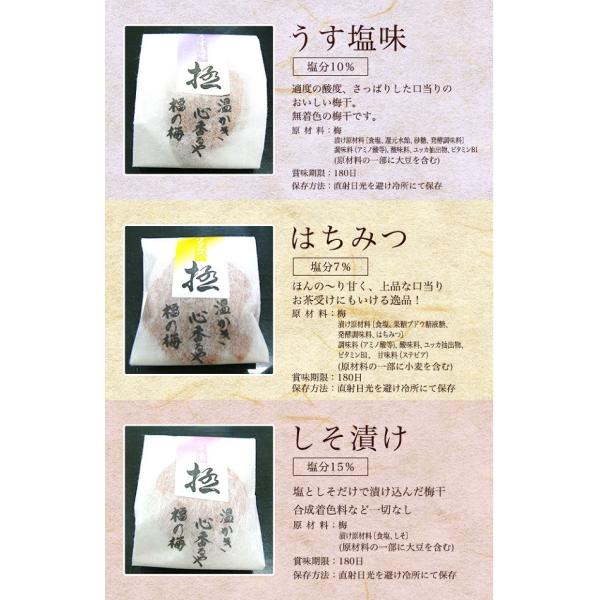 うす塩味
塩分10%
適度の酸度、さっぱりした口当りの
おいしい梅干。
無着色の梅干です。
原 材 料：梅
漬け原材料[食塩、還元水飴、砂糖、発酵調味料]
調味料(アミノ酸等)、酸味料、ユッカ抽出物、ビタミンB1
(原材料の一部に大豆を含む)
賞味期限：180日
保存方法：直射日光を避け冷所にて保存
極
温かき
心香るや
極の梅
はちみつ
塩分7%
ほんの〜り甘く、上品な口当り
お茶受けにもいける逸品！
原 材 料：梅
漬け原材料[食塩、果糖ブドウ糖液糖、
発酵調味料、はちみつ]
調味料(アミノ酸等)、酸味料、ユッカ抽出物、
ビタミンB1、 甘味料(ステビア)
(原材料の一部に小麦を含む)
賞味期限：180日
保存方法：直射日光を避け冷所にて保存
極
温かき
心香るや
極の梅
しそ漬け
塩分15%
塩としそだけで漬け込んだ梅干
合成着色料など一切なし
原 材 料：梅
漬け原材料[食塩、しそ]
(原材料の一部に大豆を含む)
賞味期限：180日
保存方法：直射日光を避け冷所にて保存
極
温かき
心香るや
極の梅